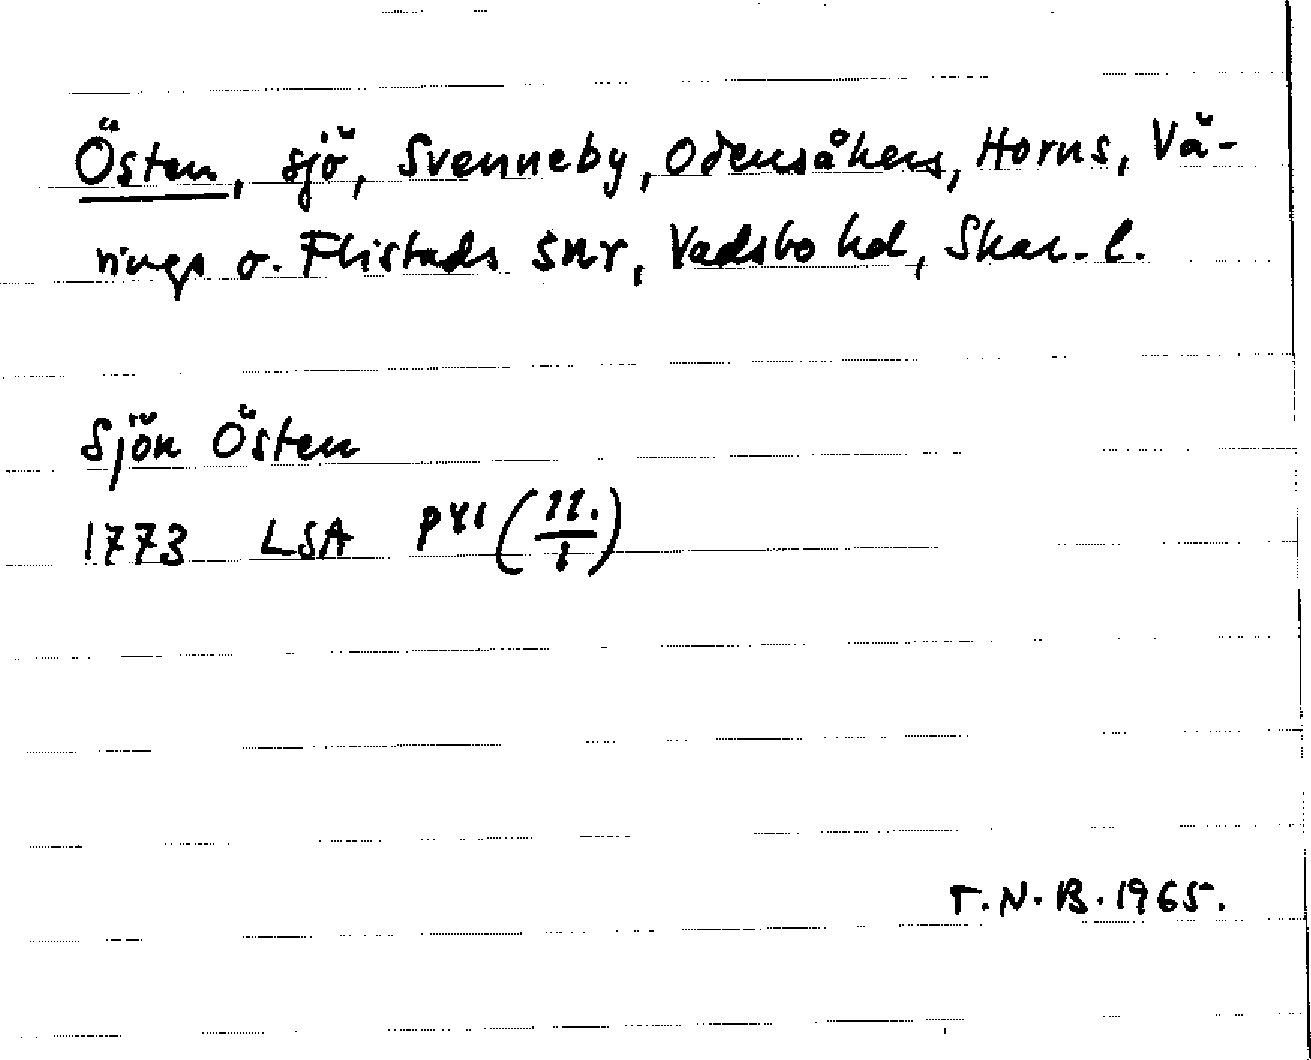 Östen, sjö, Svenneby, Odensåkers, Horns, Vä-
rings o. Flistads snr, Vadsbo hd, Skar. l.
Sjön Östen
1773 LSA P41 (11./1)
T.N.B. 1965.